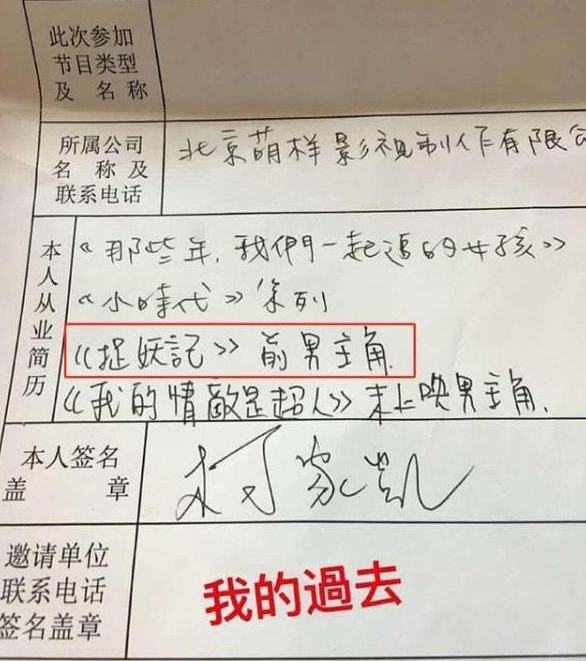 此次参加
节目类型
及 名 称
所属公司
名 称 及
联系电话
北京萌样影视制作有限公
本人从业简历
《那些年,我們一起追的女孩》
《小時代》系列
《捉妖記》前男主角
《我的情敵是超人》未上映男主角.
本人签名
盖 章
柯家凯
邀请单位
联系电话
签名盖章
我的過去